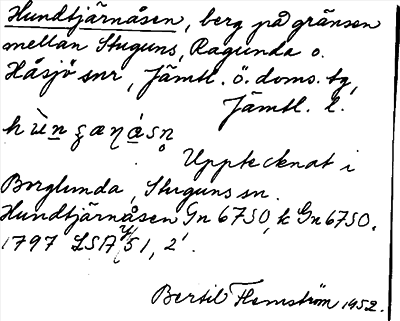 Hundtjärnåsen, berg på gränsen
mellan Stuguns, Ragunda o.
Håsjö snr, Jämtl. ö. doms. tg,
Jämtl. l.
Upptecknat i
Borglunda, Stuguns sn.
Hundtjärnåsen Gn 6750, k Gn 6750.
1797 LSA 4/51, 2'.
Bertil Flemström 1952.